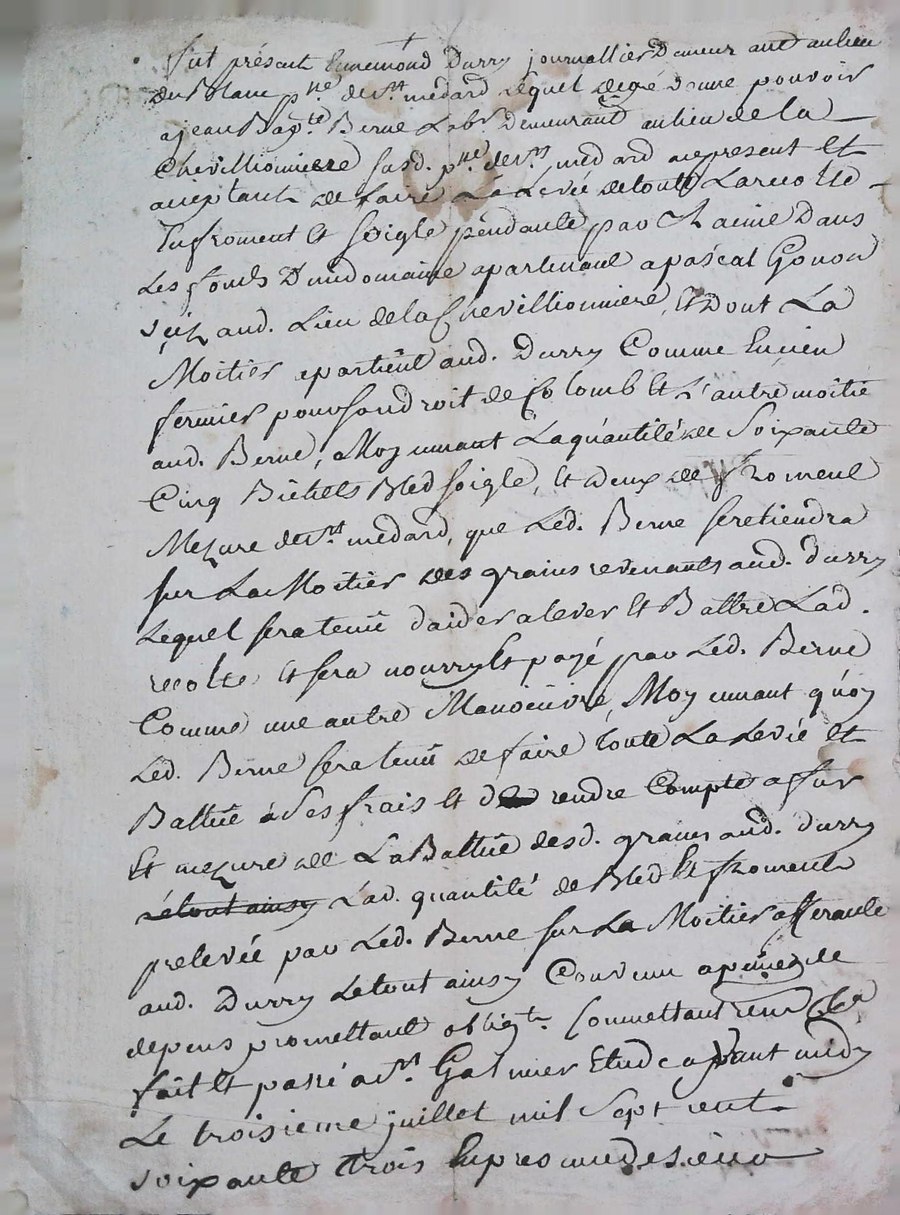 +
fut présent Ennemond Durry journallier Demeurant au lieu
du Blanc p.ne de St. medard Lequel degré Donne pouvoir
a jean Bap.te Berne Lab.r Demeurant au lieu de la
Chevillionniere susd. p.ne de St. medard au present Et
aceptant de faire La Levée de toutte La recolte
En froment Et soigle pendante par Racine Dans
Les fonds D'un domaine apartenant a pascal Gonon
scis aud. Lieu de la Chevillionniere, Et Dont La
Moitier apartient aud. Durry Comme Encien
fermier pour son droit de Colomb Et L'autre moitié
aud. Berne, Moyennant La quantité de Soixante
Cinq Bichets Bled soigle, Et deux de froment
Mezure de St. medard, que Led. Berne se retiendra
sur La Moitier des grains revenants aud. durry
Lequel sera tenu d'aider a lever Et Battre Lad.
recolte, Et sera nourry Et payé par Led. Berne
Comme une autre Manoeuvre, Moyennant quoy
Led. Berne sera tenu de faire toute La Levée et
Battue à ses frais et de rendre Compte a fur
Et mezure de La Battue desd. grains aud. durry
Le tout ainsy Lad. quantité de Bled Et froment
prelevée par Led. Berne sur La Moitier afferante
aud. Durry Le tout ainsy Convenu a peines de
depens promettant oblig.t Soumettant
fait Et passé a St. Galmier Etude avant midy
Le troisieme juillet mil Sept cent
soixante trois En presence de